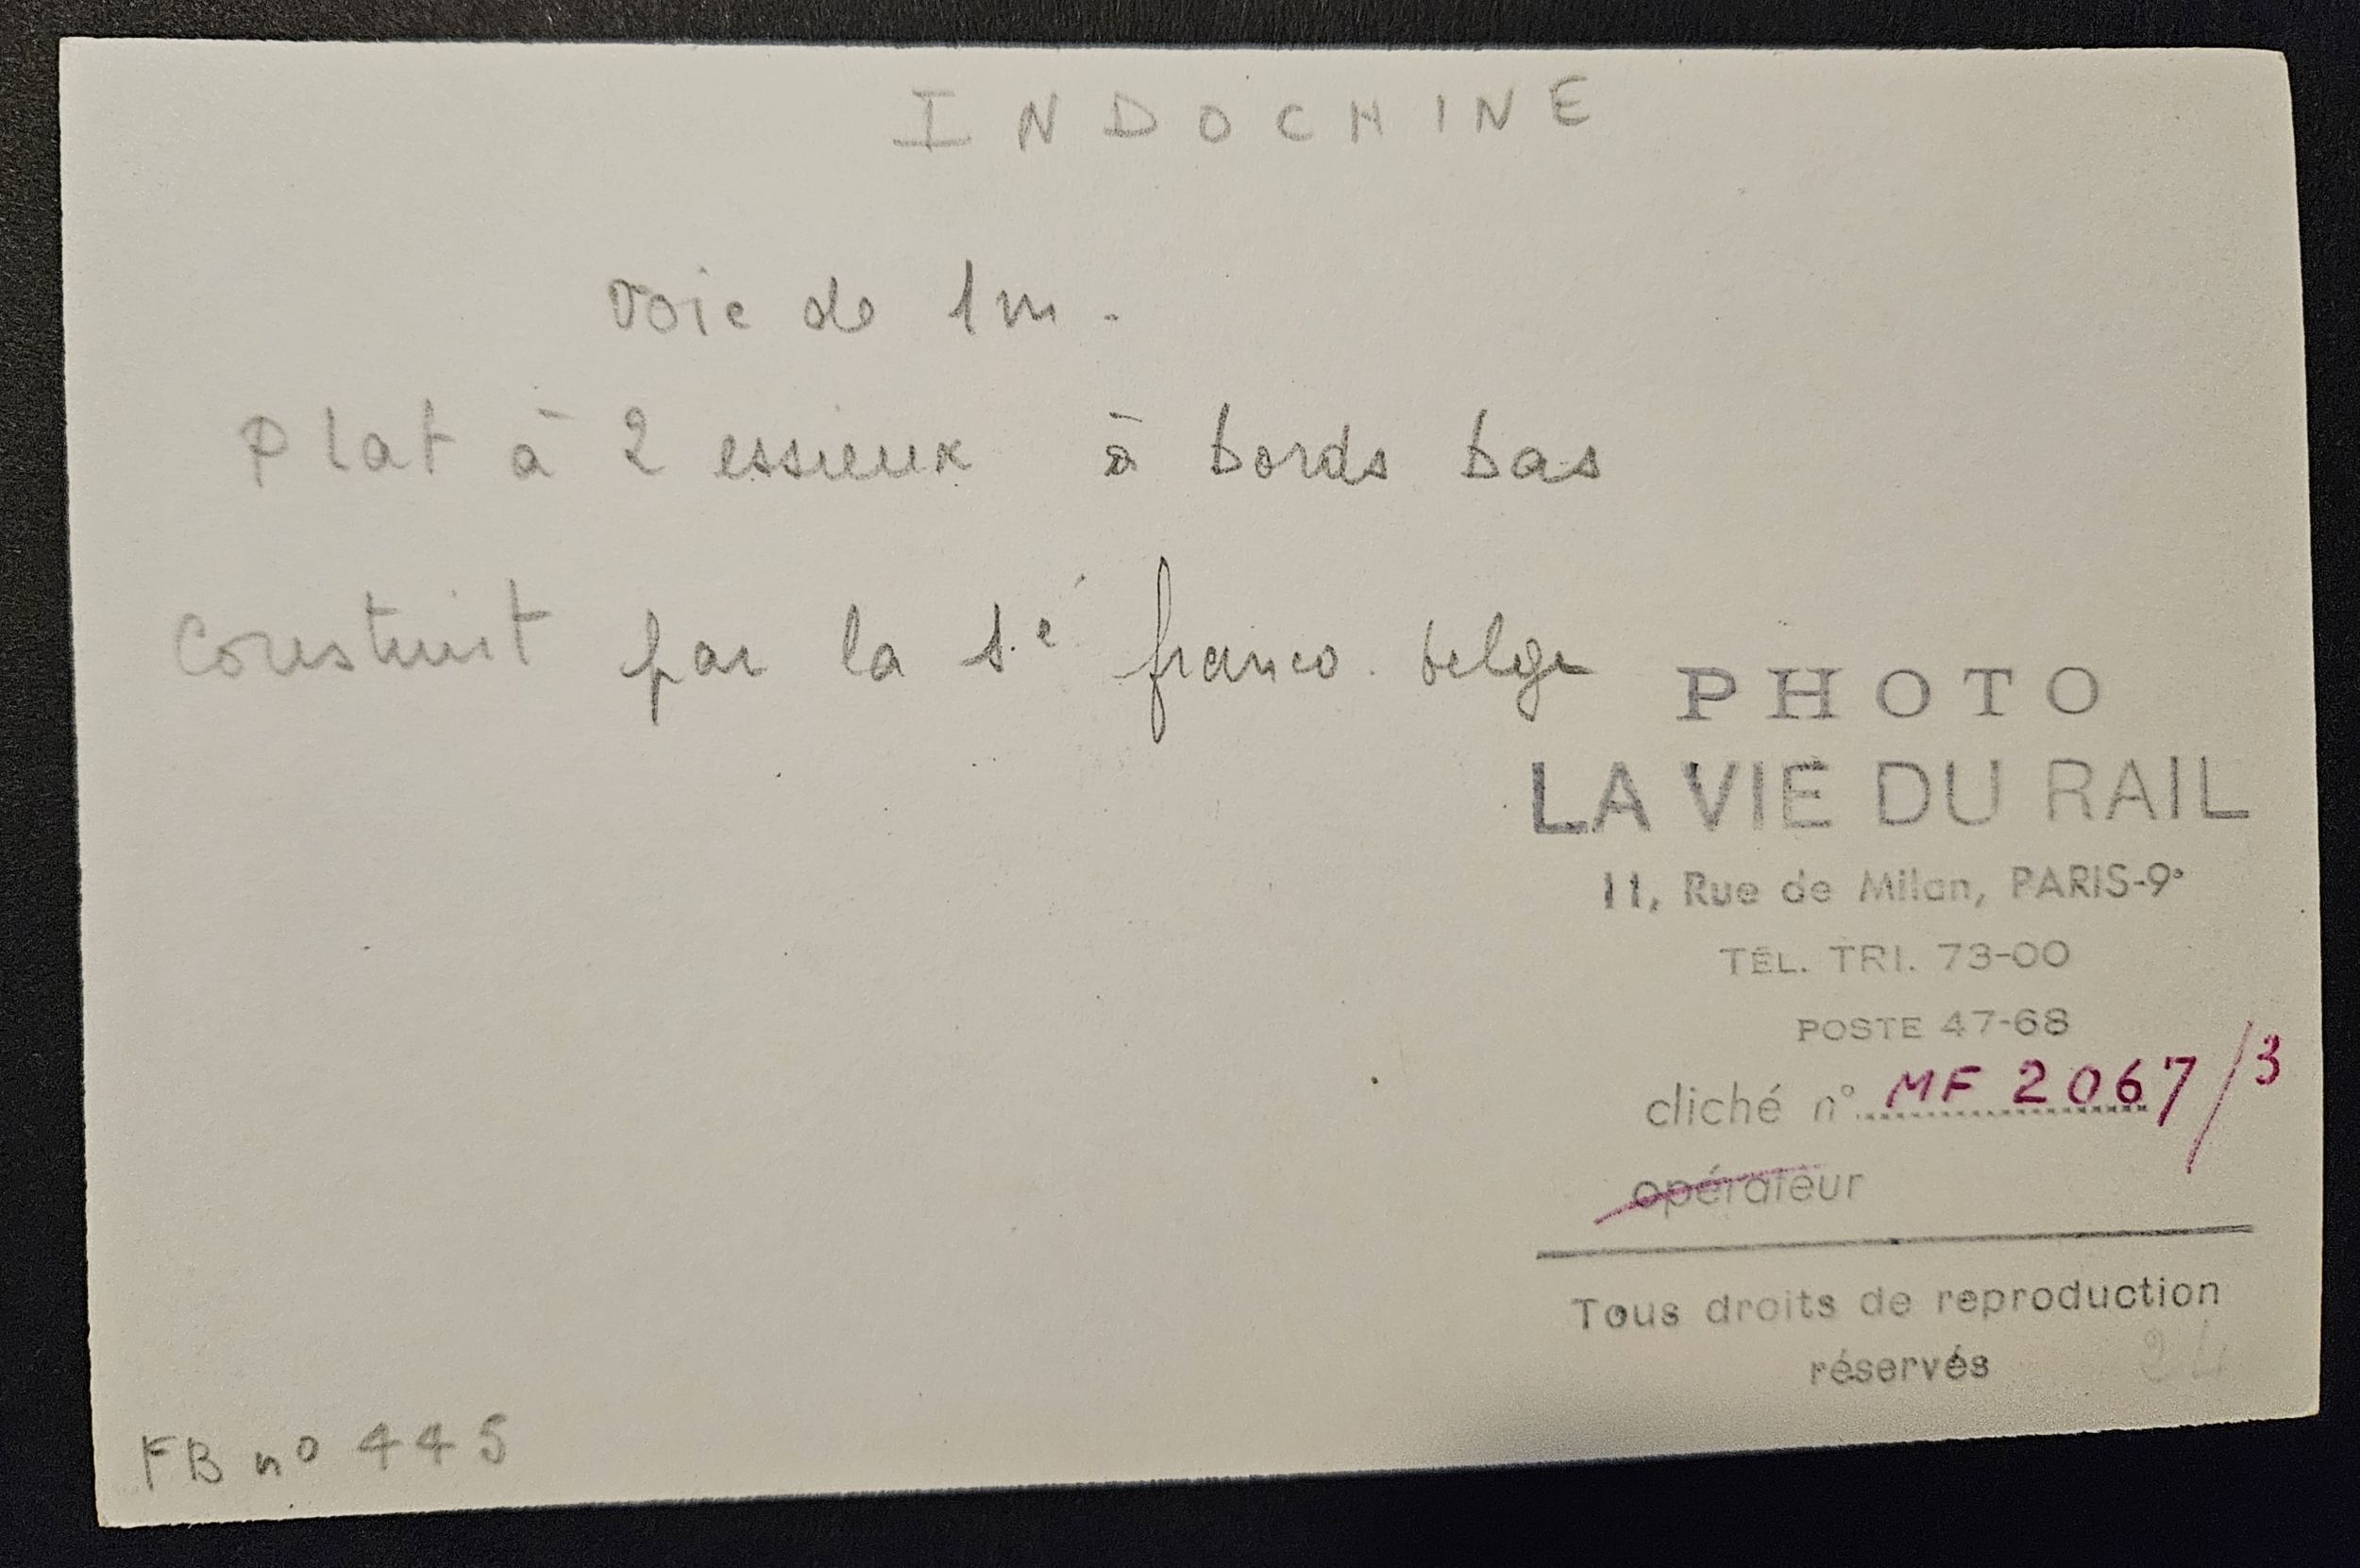 INDOCHINE
voie de 1m.
Plat à 2 essieux à bords bas
Construit par la Sté franco-belge
PHOTO
LA VIE DU RAIL
11, Rue de Milan, PARIS-9e
TÉL. TRI. 73-00
POSTE 47-68
cliché n° MF 2067/3
opérateur
Tous droits de reproduction
réservés
24
FB no 445